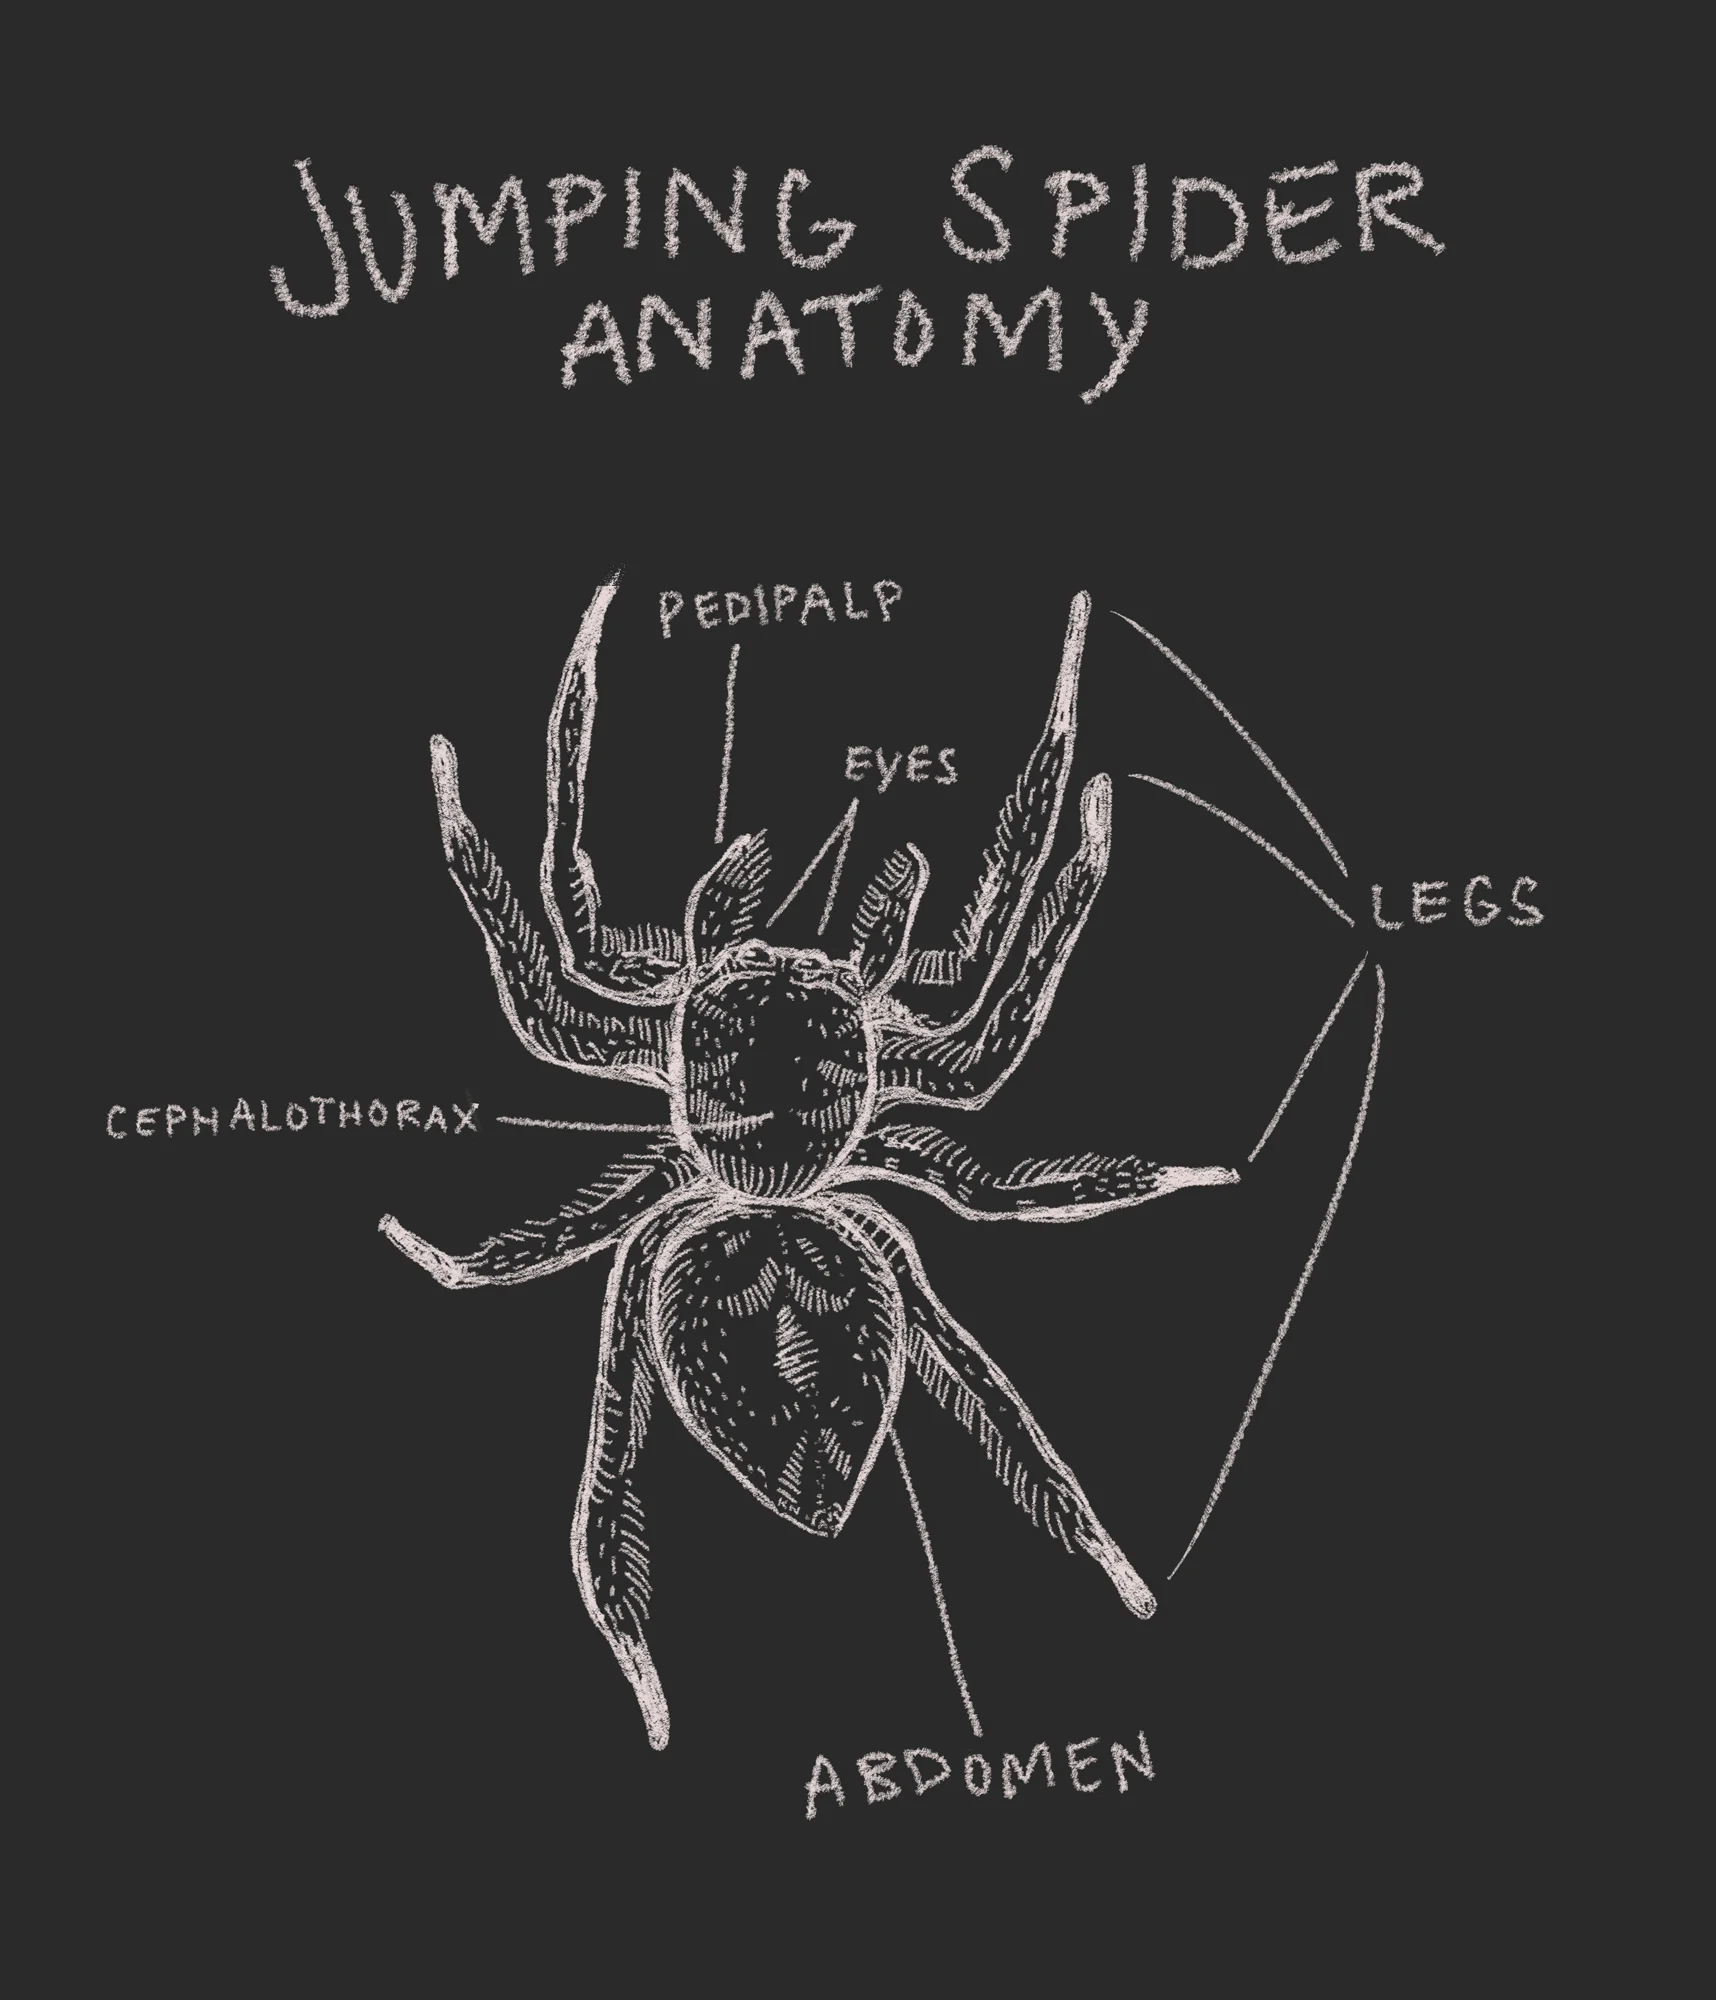 JUMPING SPIDER
ANATOMY
PEDIPALP
EYES
LEGS
CEPHALOTHORAX
ABDOMEN